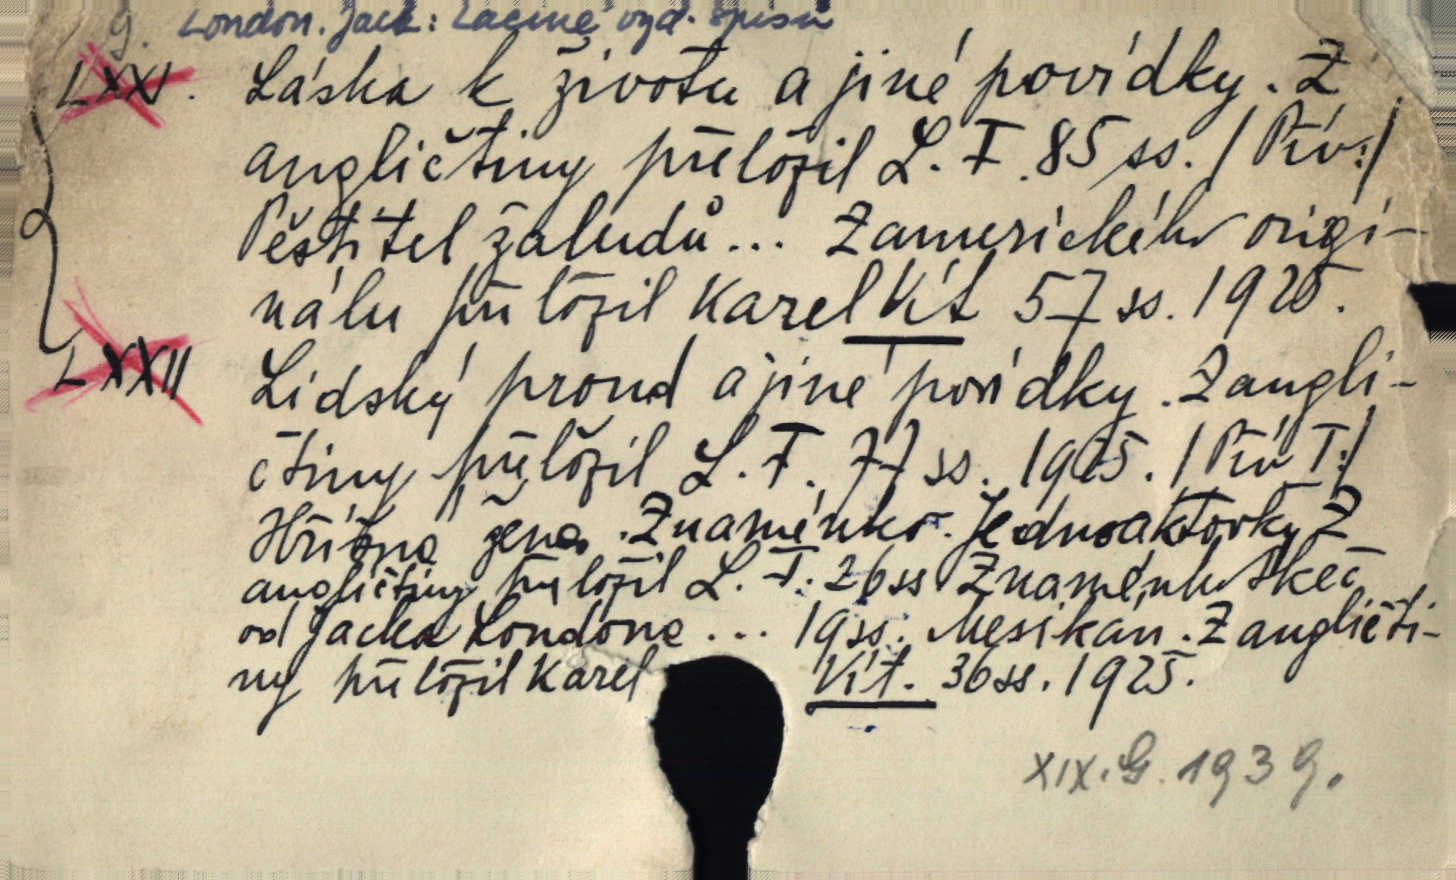 9. London. Jack: Laciné vyd. spisů
LXXI. Láska k životu a jiné povídky. Z
angličtiny přeložil L. T. 85 ss. / Přív:/
Pěstitel žaludů... Z amerického origi-
nálu přeložil Karel Vít 57 ss. 1925.
LXXII Lidský proud a jiné povídky. Z angli-
čtiny přeložil L. T. 77 ss. 1925. / Přív T:/
Hříšná žena. Znaménko. Jednoaktovky Z
angličtiny přeložil L. T. 26 ss Znaménko Skeč
od Jacka Londona ... 19 ss. Mexikán. Z angličti-
ny přeložil Karel Vít. 36 ss. 1925.
XIX. G. 1939.